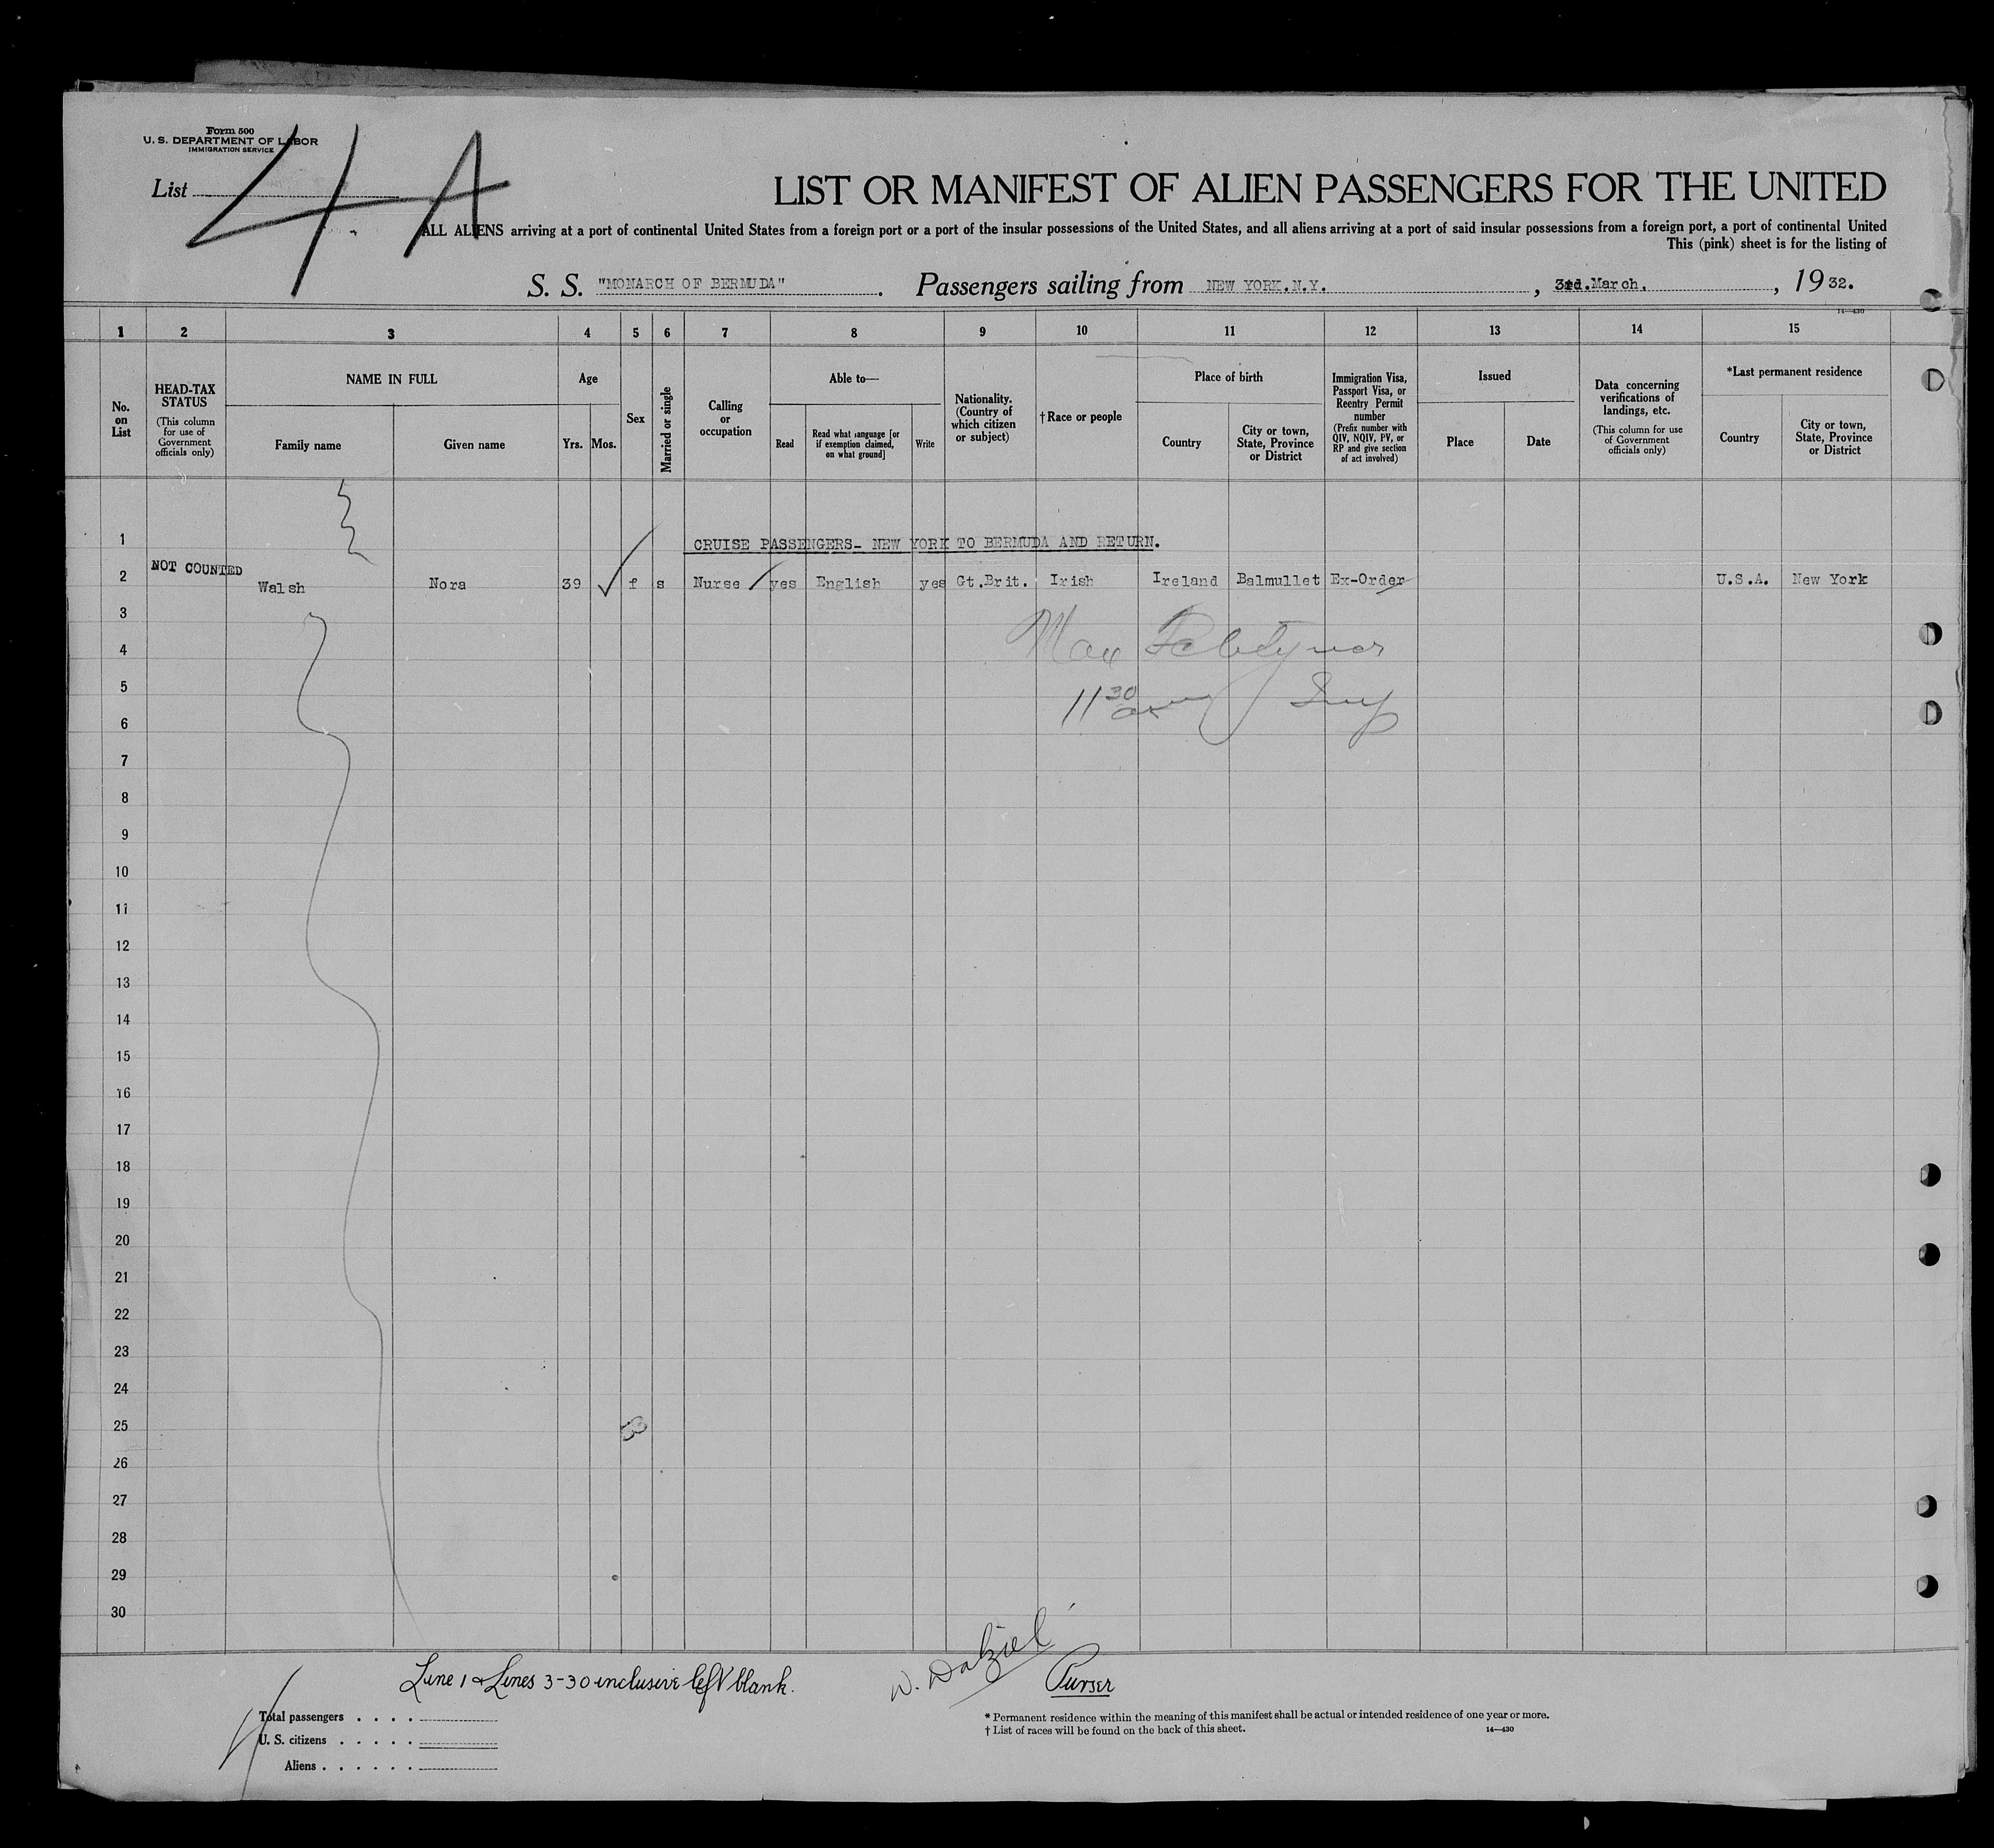 Form 500
U. S. DEPARTMENT OF LABOR
IMMIGRATION SERVICE
List 4 A
LIST OR MANIFEST OF ALIEN PASSENGERS FOR THE UNITED
ALL ALIENS arriving at a port of continental United States from a foreign port or a port of the insular possessions of the United States, and all aliens arriving at a port of said insular possessions from a foreign port, a port of continental United
This (pink) sheet is for the listing of
S. S. "MONARCH OF BERMUDA". Passengers sailing from NEW YORK.N.Y., 3rd.March., 1932.
14—430
1 2 3 4 5 6 7 8 9 10 11 12 13 14 15
No. on List
HEAD-TAX STATUS
(This column for use of Government officials only)
NAME IN FULL
Family name
Given name
Age
Yrs. Mos.
Sex
Married or single
Calling or occupation
Able to—
Read
Read what language [or if exemption claimed, on what ground]
Write
Nationality. (Country of which citizen or subject)
† Race or people
Place of birth
Country
City or town, State, Province or District
Immigration Visa, Passport Visa, or Reentry Permit number
(Prefix number with QIV, NQIV, PV, or RP and give section of act involved)
Issued
Place
Date
Data concerning verifications of landings, etc.
(This column for use of Government officials only)
*Last permanent residence
Country
City or town, State, Province or District
1 CRUISE PASSENGERS- NEW YORK TO BERMUDA AND RETURN.
2 NOT COUNTED Walsh Nora 39 f s Nurse yes English yes Gt.Brit. Irish Ireland Balmullet Ex-Order U.S.A. New York
3
4
5 11 30
6
7
8
9
10
11
12
13
14
15
16
17
18
19
20
21
22
23
24
25
26
27
28
29
30
Line 1 & Lines 3-30 inclusive left blank.
W. Dalziel
Purser
Total passengers . . . .
U. S. citizens . . . . .
Aliens . . . . . .
* Permanent residence within the meaning of this manifest shall be actual or intended residence of one year or more.
† List of races will be found on the back of this sheet.
14—430